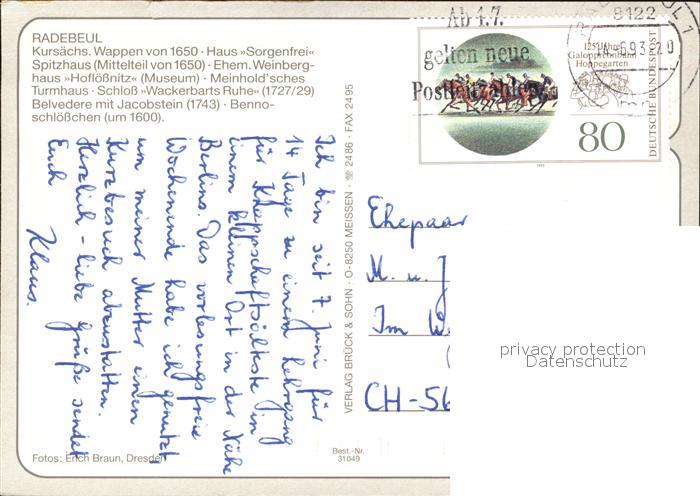 RADEBEUL
Kursächs. Wappen von 1650 · Haus »Sorgenfrei«
Spitzhaus (Mittelteil von 1650) · Ehem. Weinberg-
haus »Hoflößnitz« (Museum) · Meinhold'sches
Turmhaus · Schloß »Wackerbarts Ruhe« (1727/29)
Belvedere mit Jacobstein (1743) · Benno-
schlößchen (um 1600).
Ich bin seit 7. Juni für
14 Tage zu einem Lehrgang
für Knappschaftsälteste in
einem kleinen Ort in der Nähe
Berlins. Das vorlesungsfreie
Wochenende habe ich genutzt,
um meiner Mutter einen
Kurzbesuch abzustatten.
Herzlich - liebe Grüße sendet
Euch
Klaus.
Fotos: Erich Braun, Dresden
Best.-Nr.
31049
VERLAG BRÜCK & SOHN · O-8250 MEISSEN · ☏ 2486 · FAX 2495
Ab 1.7.
gelten neue
8122
125 Jahre
Galopprennbahn
Hoppegarten
80
DEUTSCHE BUNDESPOST
1993
Ehepaar
M. u. J
Im
CH-56
privacy protection
Datenschutz